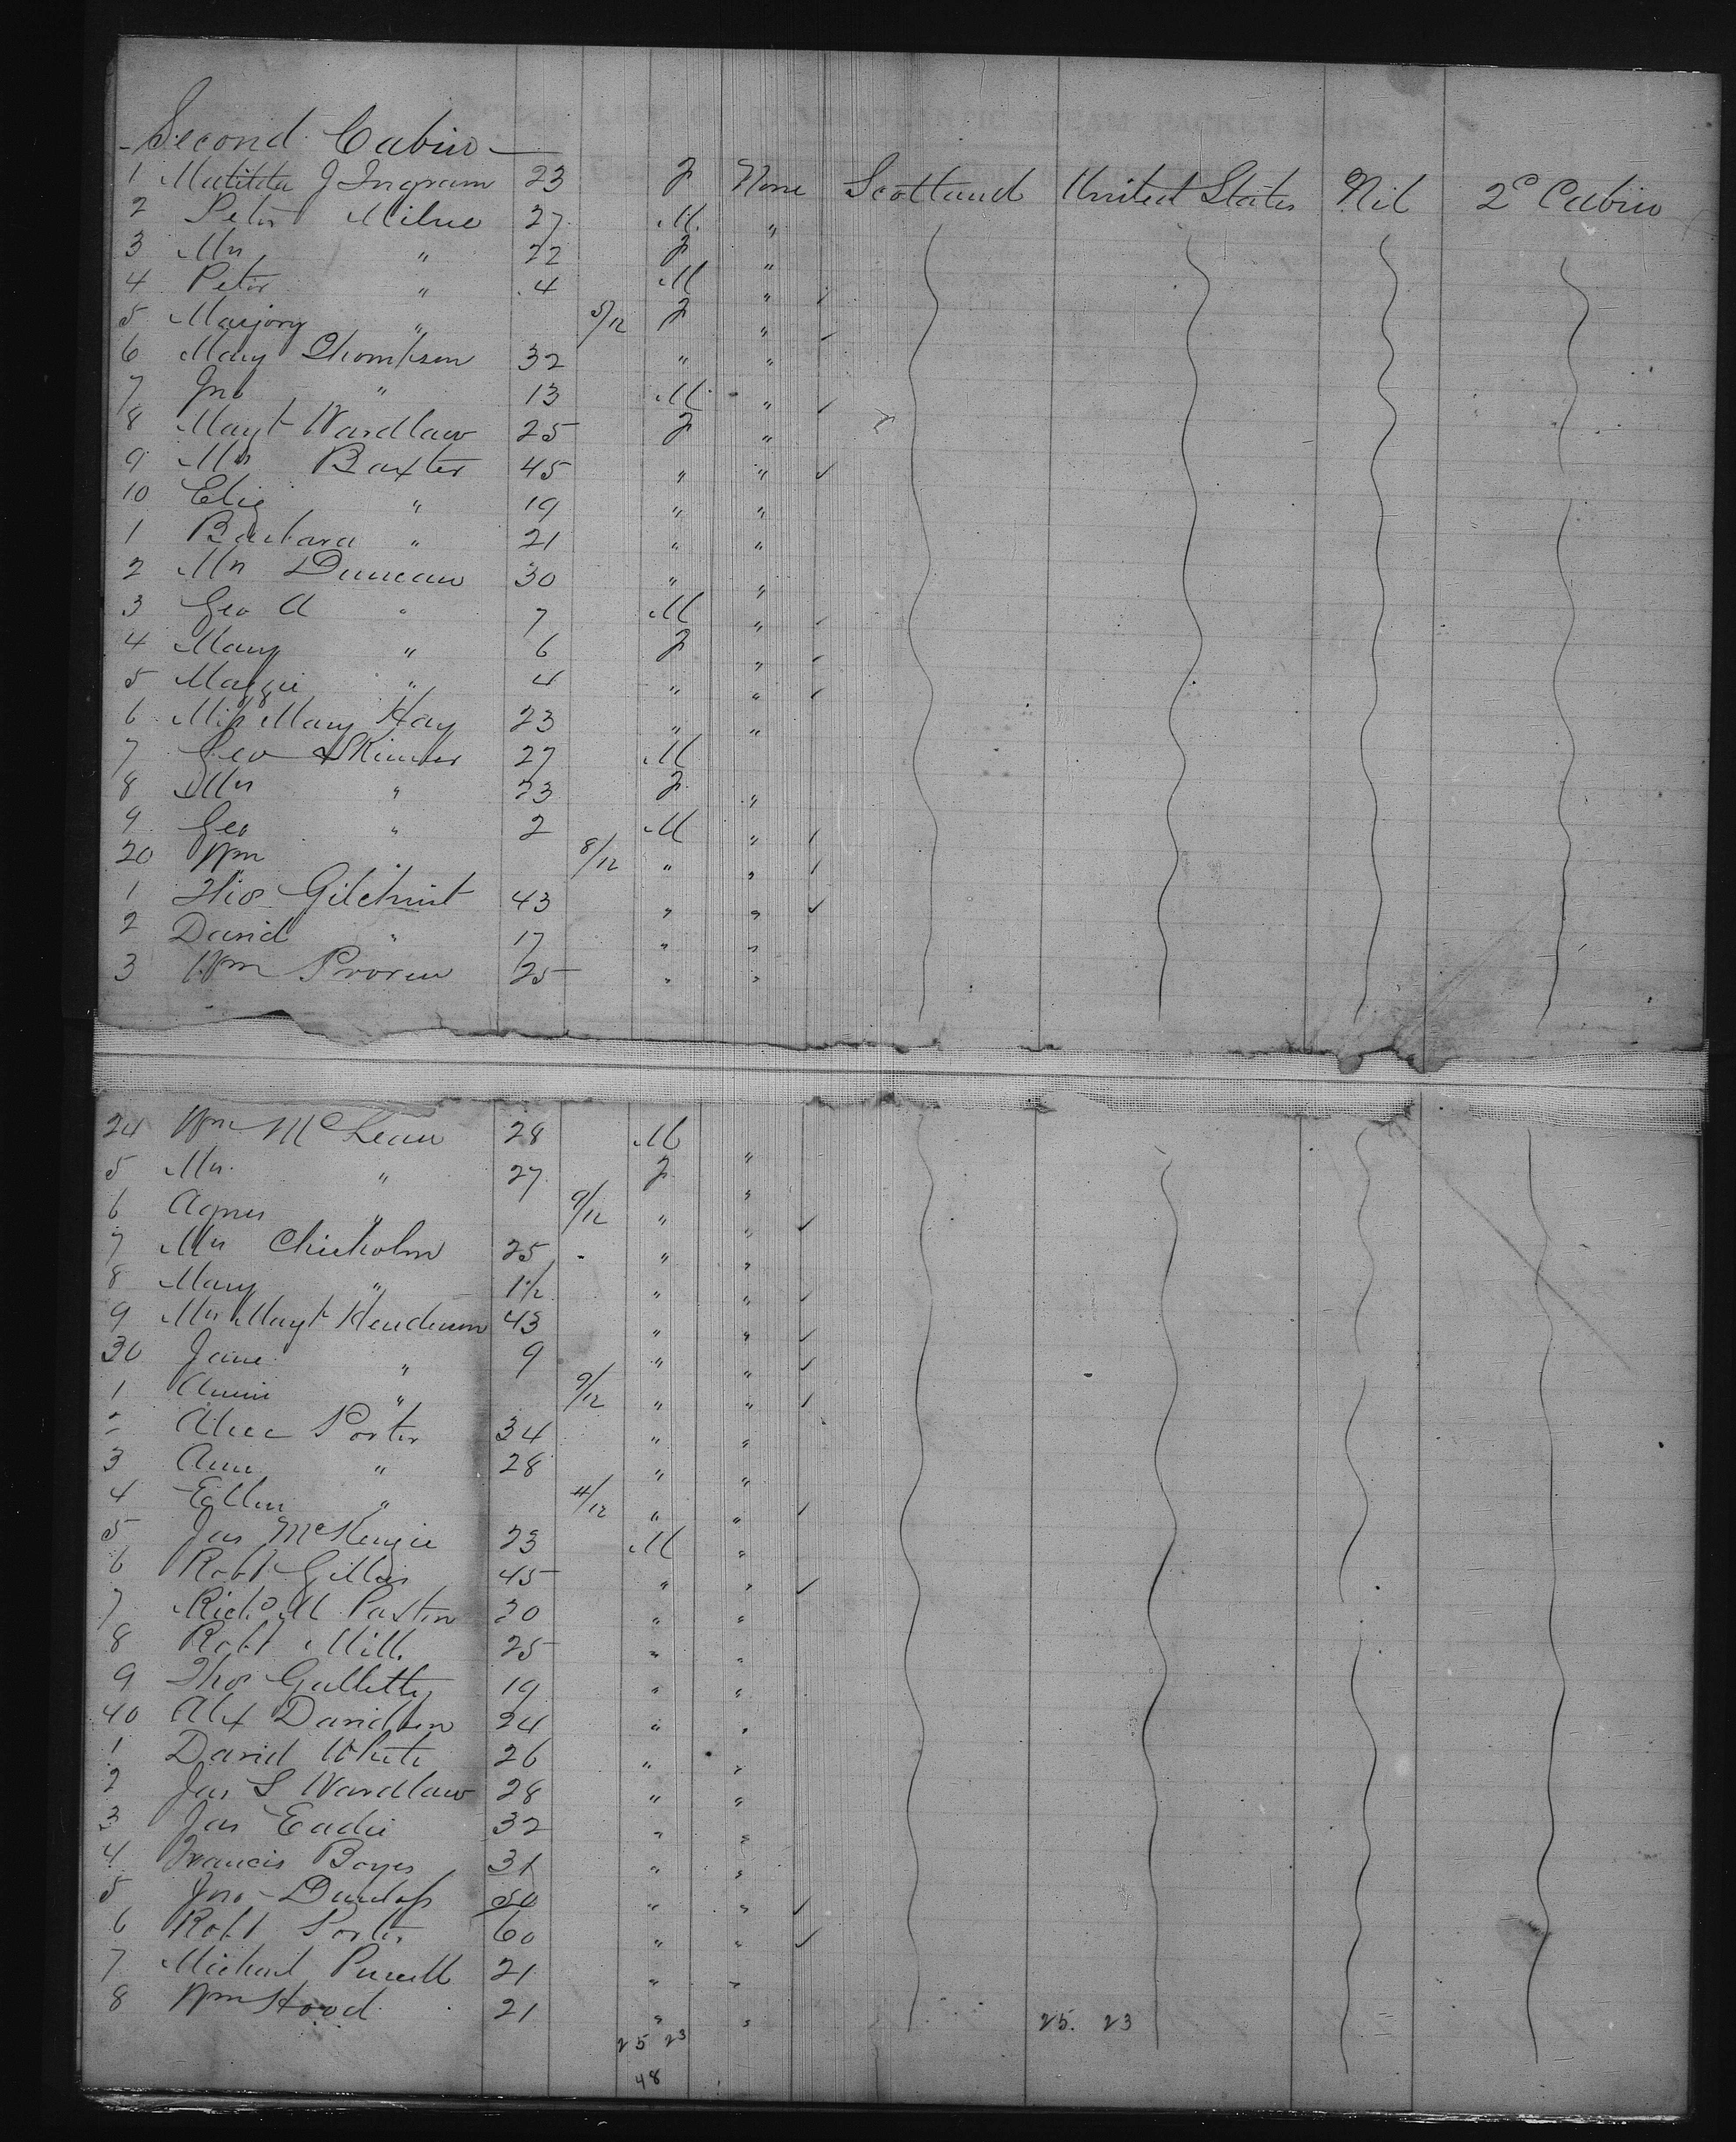 Second Cabin
1 Matilda J Ingram 23 F None Scotland United States Nil 2º Cabin
2 Peter Milne 27 M "
3 Mrs " 22 F "
4 Peter " 4 M " ✓
5 Marjory " 5/12 F " ✓
6 Mary Thompson 32 " "
7 Jno " 13 M " ✓
8 Magt Wardlaw 25 F "
9 Mrs Baxter 45 " " ✓
10 Eliz " 19 " "
1 Barbara " 21 " "
2 Mrs Duncan 30 " "
3 Geo A " 7 M " ✓
4 Mary " 6 F " ✓
5 Maggie " 4 " " ✓
6 Miss Mary Hay 23 " "
7 Geo Skinner 27 M
8 Mrs " 23 F "
9 Geo " 2 M " ✓
20 Wm 8/12 " " ✓
1 Thos Gilchrist 43 " " ✓
2 David " 17 " "
3 Wm Proven 25 " "
24 Wm McLean 28 M "
5 Mrs " 27 F "
6 Agnes " 9/12 " " ✓
7 Mrs Chisholm 25 " "
8 Mary " 1½ " " ✓
9 Mrs Magt Henderson 43 " " ✓
30 Jane " 9 " " ✓
1 Annie " 9/12 " " ✓
2 Alice Porter 34 " "
3 Ann " 28 " "
4 Ellen " 11/12 " " ✓
5 Jas McKenzie 23 M "
6 Robt Gillies 45 " " ✓
7 Richd M 20 " "
8 Robt Mill 25 " "
9 Thos Galletty 19 " "
40 Alex Davidson 24 " "
1 David White 26 " "
2 Jas S Wardlaw 28 " "
3 Jas Eadie 32 " "
4 Francis Boyes 31 " "
5 Jno Dunlop 50 " " ✓
6 Robt Porter 60 " " ✓
7 Michael Purcell 21 " "
8 Wm Hood 21 " "
25 23 25. 23
48